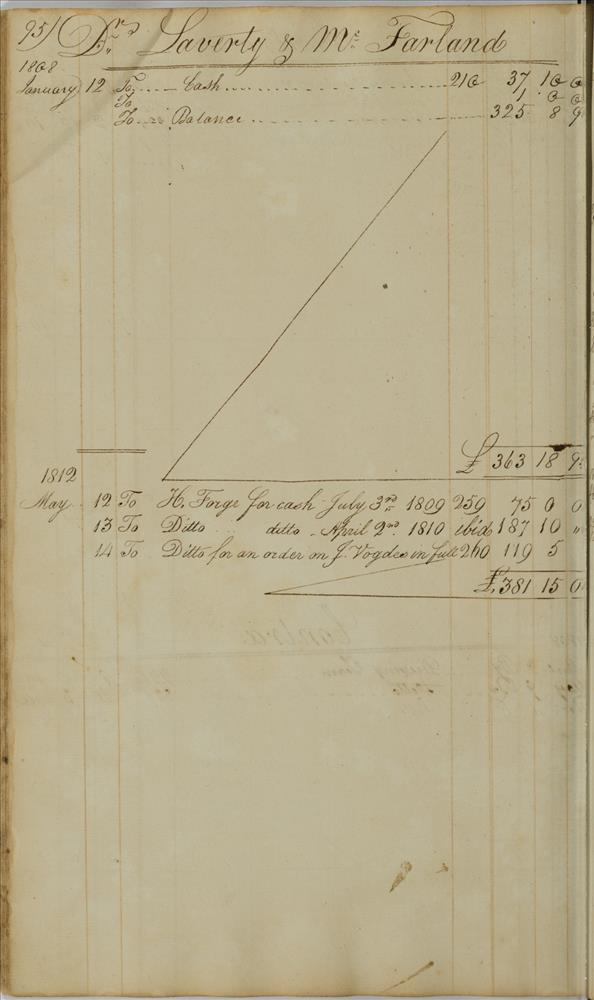 95/ Dr Laverty & Mc Farland
1808
January 12 To Cash 210 37 10 0
To 1 0 0
To Balance 325 8 9
£ 363 18 9
1812
May 12 To H. Forge for cash July 3rd 1809 259 75 0 0
13 To Ditto ditto April 2nd 1810 ibid 187 10 "
14 To Ditto for an order on J. Vogdes in full 260 119 5
£ 381 15 0